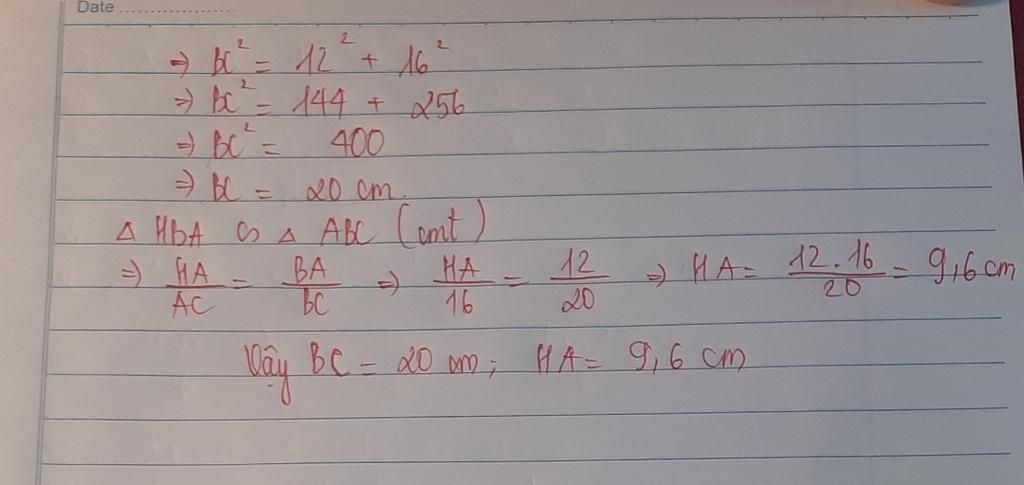 Date ....................
⇒ BC² = 12² + 16²
⇒ BC² = 144 + 256
⇒ BC² = 400
⇒ BC = 20 cm.
Δ HBA ∽ Δ ABC (cmt)
⇒ HA/AC = BA/BC ⇒ HA/16 = 12/20 ⇒ HA = 12.16/20 = 9,6 cm
Vậy BC = 20 cm; HA = 9,6 cm